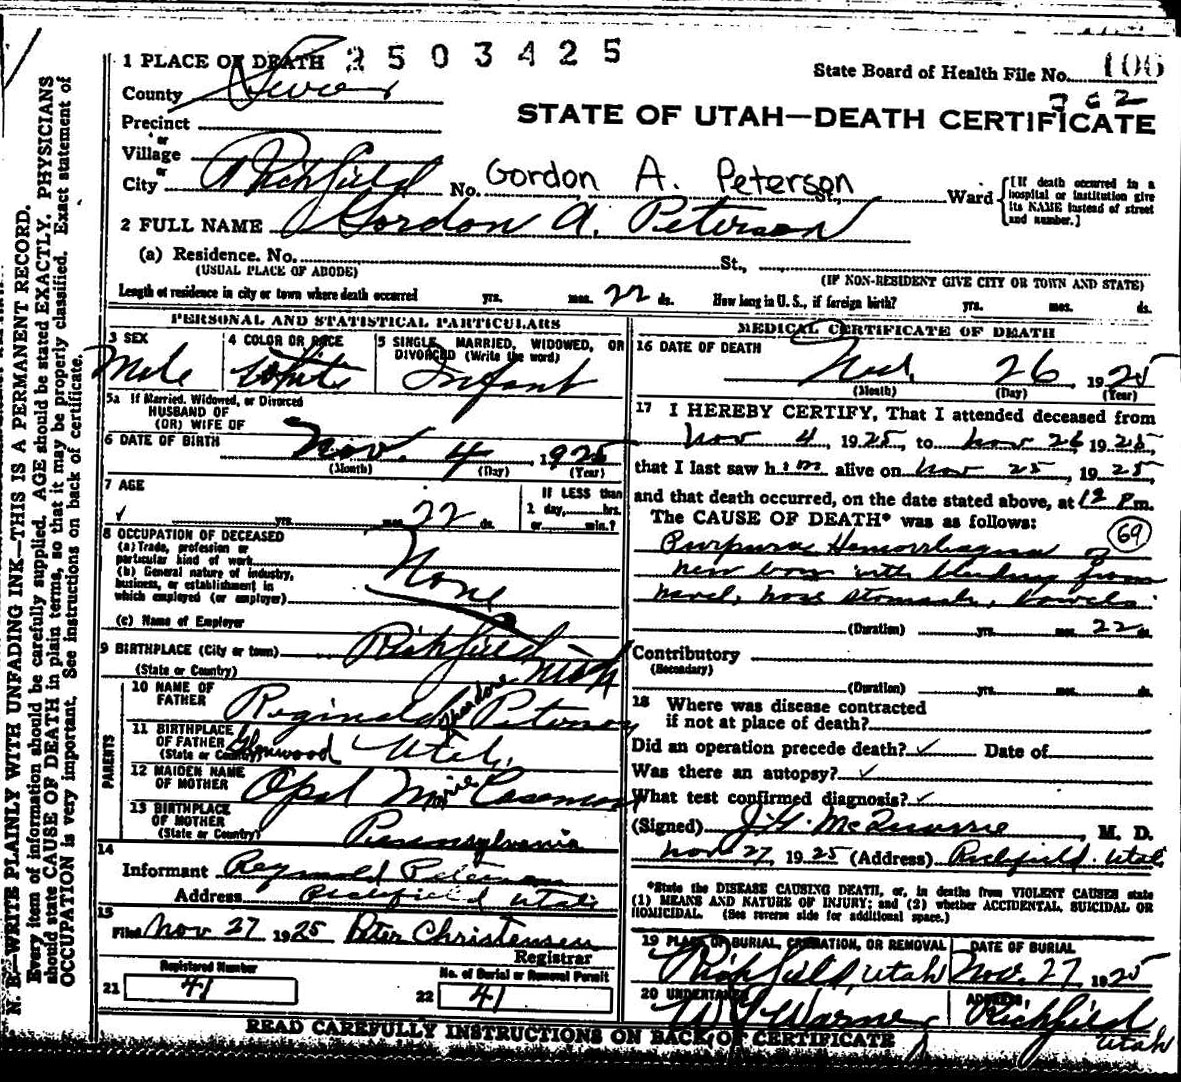 1 PLACE OF DEATH 2503425
State Board of Health File No. 106
362
County Sevier
STATE OF UTAH—DEATH CERTIFICATE
Precinct
or
Village
or
City Richfield No. Gordon A. Peterson St., Ward [If death occurred in a hospital or institution give its NAME instead of street and number.]
2 FULL NAME Gordon A. Peterson
(a) Residence. No. St.,
(USUAL PLACE OF ABODE) (IF NON-RESIDENT GIVE CITY OR TOWN AND STATE)
Length of residence in city or town where death occurred yrs. mos. 22 ds. How long in U. S., if foreign birth? yrs. mos. ds.
PERSONAL AND STATISTICAL PARTICULARS
3 SEX Male
4 COLOR OR RACE White
5 SINGLE, MARRIED, WIDOWED, OR DIVORCED (Write the word) Infant
5a If Married, Widowed, or Divorced
HUSBAND OF
(OR) WIFE OF
6 DATE OF BIRTH Nov. 4, 1925
(Month) (Day) (Year)
7 AGE yrs. mos. 22 ds.
If LESS than
1 day, hrs.
or min.?
8 OCCUPATION OF DECEASED
(a) Trade, profession or
particular kind of work None
(b) General nature of industry,
business, or establishment in
which employed (or employer)
(c) Name of Employer
9 BIRTHPLACE (City or town) Richfield
(State or Country) Utah
PARENTS
10 NAME OF FATHER Reginald Theodore Peterson
11 BIRTHPLACE OF FATHER Glenwood Utah.
(State or Country)
12 MAIDEN NAME OF MOTHER Opal Marie
13 BIRTHPLACE OF MOTHER
(State or Country) Pennsylvania
14
Informant Reginald Peterson
Address Richfield Utah
15
Filed Nov 27 1925 Peter Christensen
Registrar
Registered Number
21 41
No. of Burial or Removal Permit
22 41
MEDICAL CERTIFICATE OF DEATH
16 DATE OF DEATH
Nov. 26, 1925
(Month) (Day) (Year)
17 I HEREBY CERTIFY, That I attended deceased from
Nov 4, 1925, to Nov 26, 1925,
that I last saw him alive on Nov 25, 1925,
and that death occurred, on the date stated above, at 12 P.m.
The CAUSE OF DEATH* was as follows: 69
Purpura Hemorrhagica of
new born with bleeding from
navel, nose stomach, bowels.
(Duration) yrs. mos. 22 ds.
Contributory
(Secondary)
(Duration) yrs. mos. ds.
18 Where was disease contracted
if not at place of death?
Did an operation precede death? ✓ Date of
Was there an autopsy? ✓
What test confirmed diagnosis? ✓
(Signed) J.G. McQuarrie, M. D.
Nov 27, 1925 (Address) Richfield Utah
*State the DISEASE CAUSING DEATH, or, in deaths from VIOLENT CAUSES state
(1) MEANS AND NATURE OF INJURY; and (2) whether ACCIDENTAL, SUICIDAL OR
HOMICIDAL. (See reverse side for additional space.)
19 PLACE OF BURIAL, CREMATION, OR REMOVAL Richfield, Utah
DATE OF BURIAL Nov. 27 1925
20 UNDERTAKER Warner
ADDRESS, Richfield Utah
READ CAREFULLY INSTRUCTIONS ON BACK OF CERTIFICATE
N. B.—WRITE PLAINLY WITH UNFADING INK—THIS IS A PERMANENT RECORD.
Every item of information should be carefully supplied. AGE should be stated EXACTLY. PHYSICIANS
should state CAUSE OF DEATH in plain terms, so that it may be properly classified. Exact statement of
OCCUPATION is very important. See instructions on back of certificate.